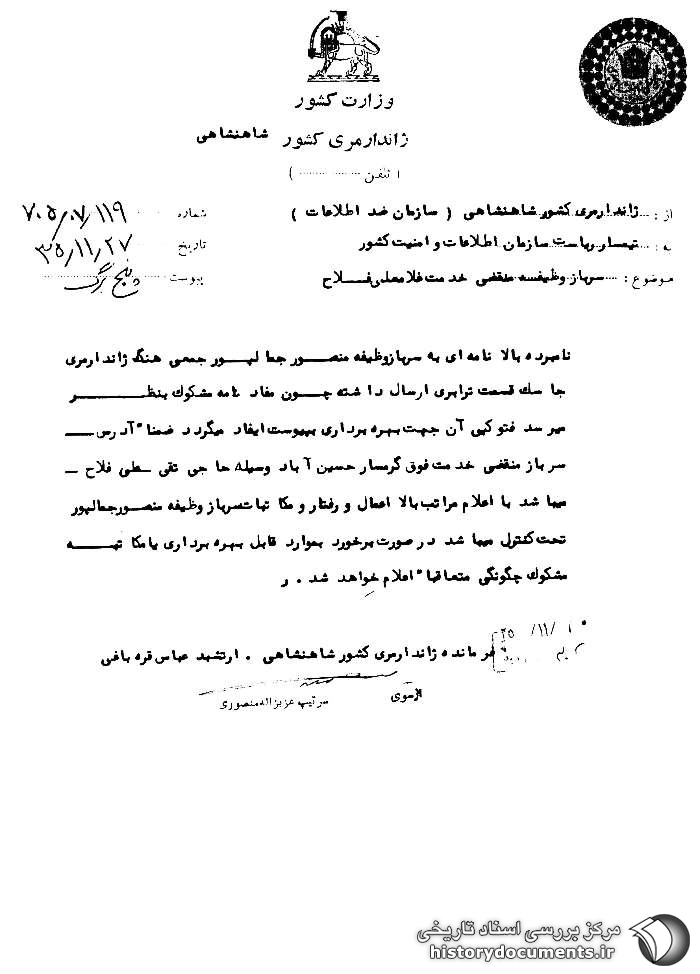 وزارت کشور
ژاندارمری کشور شاهنشاهی
( تلفن ............ )
از : ژاندارمری کشور شاهنشاهی ( سازمان ضد اطلاعات )
به : تیمسار ریاست سازمان اطلاعات و امنیت کشور
موضوع : سرباز وظیفه منقضی خدمت غلامعلی فلاح
شماره ۷۰۵/۰۷/۱۱۹
تاریخ ۳۵/۱۱/۲۷
پیوست پنج برگ
نامبرده بالا نامه ای به سرباز وظیفه منصور جمالپور جمعی هنگ ژاندارمری
جاسک قسمت ترابری ارسال داشته چون مفاد نامه مشکوک بنظر
میرسد فتوکپی آن جهت بهره برداری بپیوست ایفاد میگردد ضمنا" آدرس
سرباز منقضی خدمت فوق گرمسار حسین آباد وسیله حاجی تقی علی فلاح
میباشد با اعلام مراتب بالا اعمال و رفتار و مکاتبات سرباز وظیفه منصور جمالپور
تحت کنترل میباشد در صورت برخورد بموارد قابل بهره برداری یا مکاتبه
مشکوک چگونگی متعاقبا" اعلام خواهد شد . ر
فرمانده ژاندارمری کشور شاهنشاهی . ارتشبد عباس قره باغی
سرتیپ عزیزاله منصوری
مرکز بررسی اسناد تاریخی
historydocuments.ir